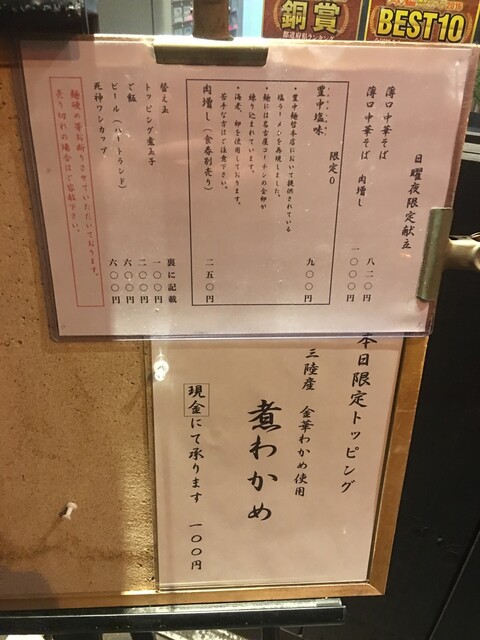 銅賞
都道府県ランキング
BEST10
日曜夜限定献立
薄口中華そば 八二〇円
薄口中華そば 肉増し 一〇〇〇円
限定0
豊中塩味 九〇〇円
・豊中麺哲本店において提供されている
塩ラーメンを再現しました。
・麺には名古屋コーチンの全卵が
練り込まれています。
・海老、卵を使用しております。
苦手な方はご注意下さい。
肉増し（食券別売り） 二五〇円
替え玉 裏に記載
トッピング煮玉子 一〇〇円
ご飯 二〇〇円
ビール（ハートランド） 六〇〇円
死神ワンカップ 六〇〇円
麺硬め等お断りさせていただいております。
売り切れの場合はご容赦下さい。
本日限定トッピング
三陸産 金華わかめ使用
煮わかめ
現金にて承ります 一〇〇円